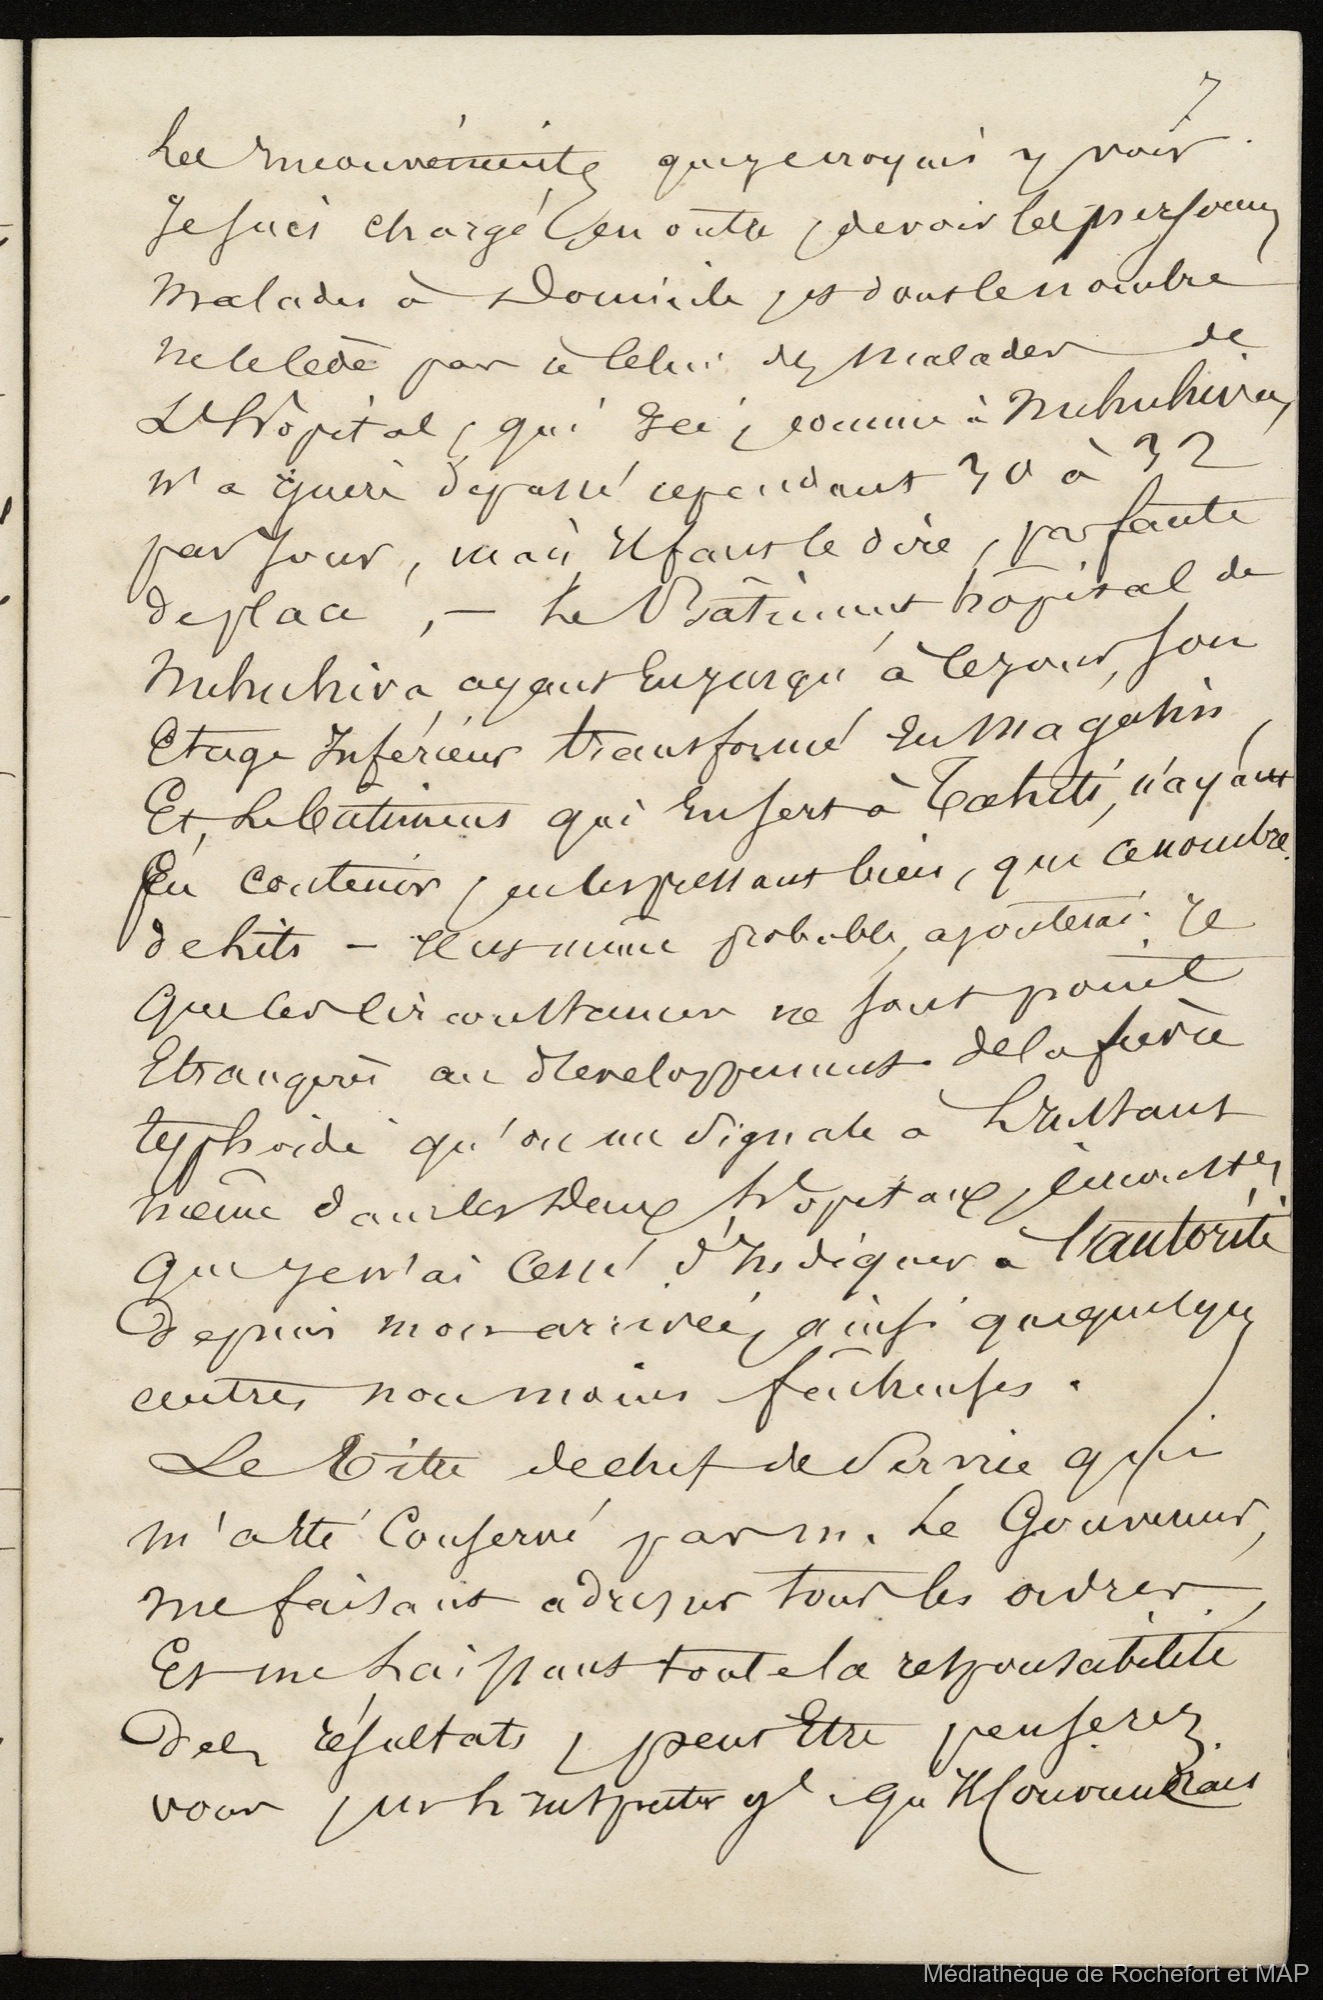 7
Les mouvements que je croyais y voir.
Je suis chargé, en outre, de voir les personnes
malades à Domicile, et dont le nombre
ne le cède pas à celui des malades de
L'Hopital, qui Ici, comme à Nukuhiva,
n'a guère dépassé cependant 30 à 32
par Jour, mais Il faut le dire, par faute
de place, — Le Bâtiment hôpital de
Nukuhiva ayant Eu jusqu'à ce jour, son
Etage Inférieur transformé En Magasin,
Et, Le bâtiment qui En sert à Tahiti, n'ayant
pu contenir, en les pressant bien, que ce nombre
de lits — Il est même probable, ajouterai-Je
que ces circonstances ne sont point
Etrangères au développement de la fièvre
typhoïde qu'on me signale à L'Instant
même dans les Deux Hopitaux, circonstes
que je n'ai cessé d'Indiquer à l'autorité
Depuis mon arrivée, ainsi que quelques
autres non moins fâcheuses.
Le Titre de chef de Service qui
m'a Eté Conservé par M. Le Gouverneur,
me faisant adresser tous les ordres,
Et me Laissant toute la responsabilité
Des résultats, peut Etre penserez
vous, M. L'Inspecteur gl. qu'Il conviendrait
Médiathèque de Rochefort et MAP